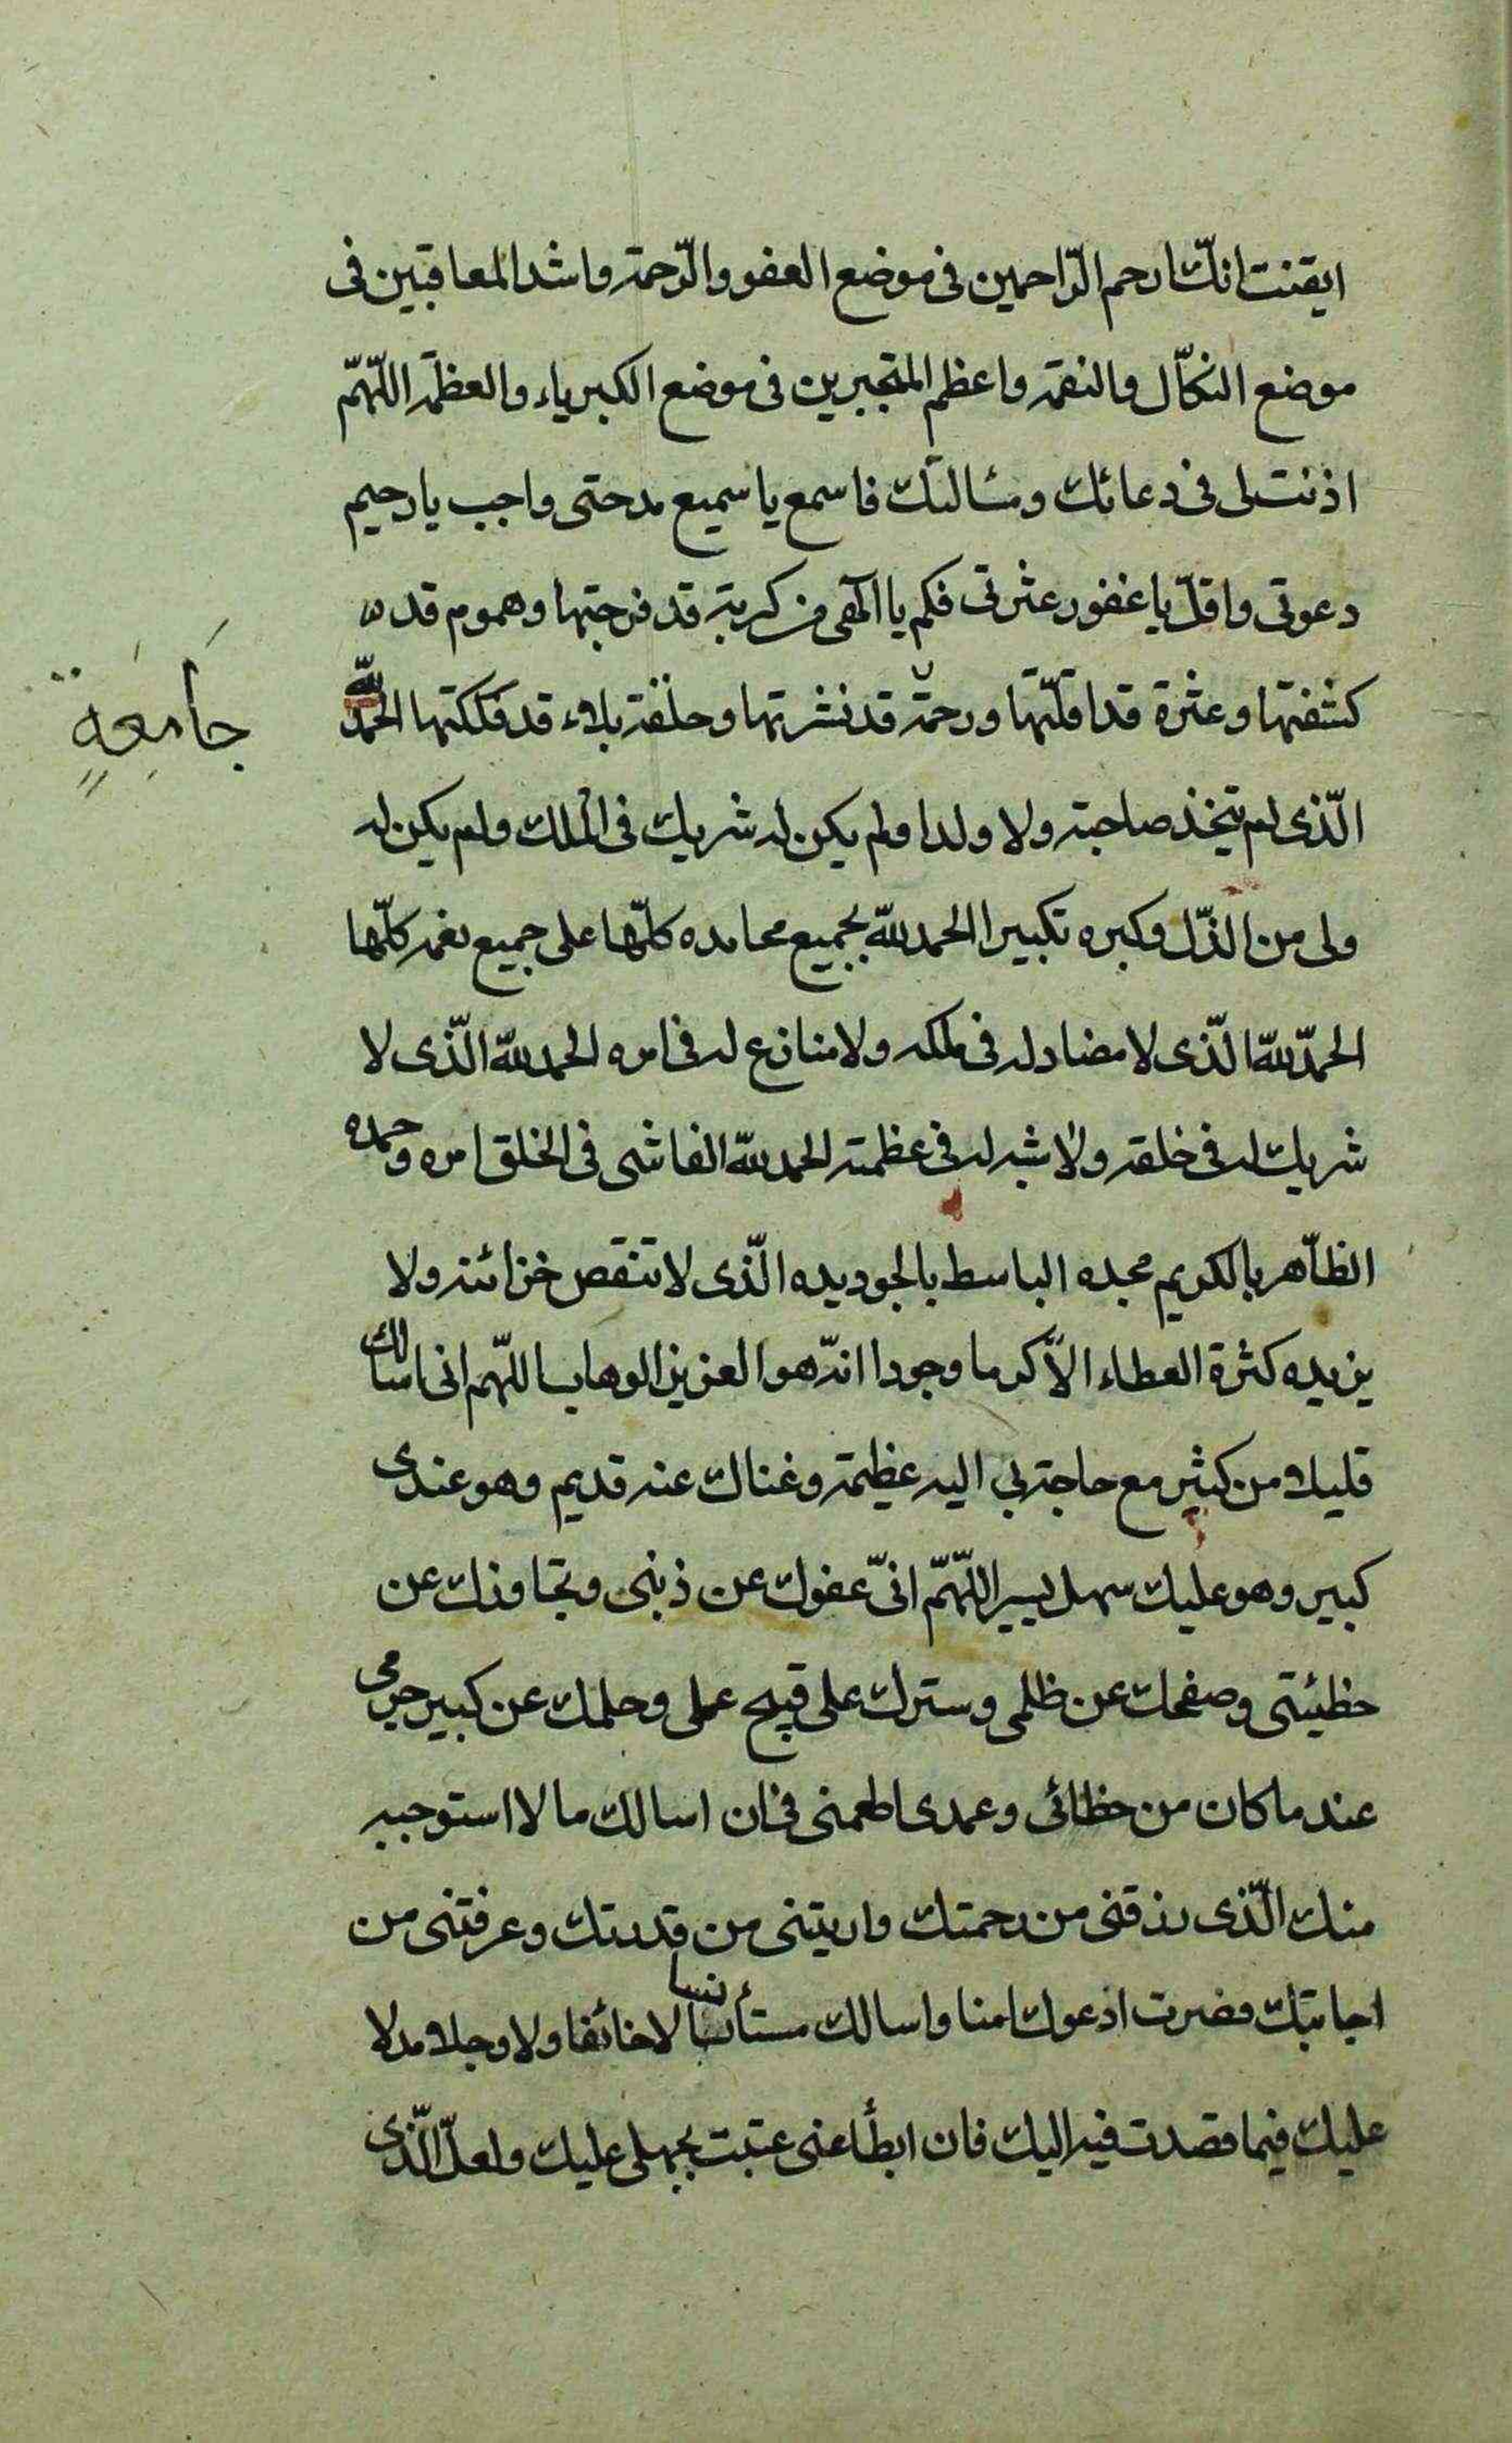 ايقنت انّك ارحم الرّاحمين فى موضع العفو والرّحمة واشد المعاقبين فى
موضع النكّال والنقمة واعظم المتجبرين فى موضع الكبرياء والعظمة اللّهمّ
اذنت لى فى دعائك ومسالتك فاسمع يا سميع مدحتى واجب يا رحيم
دعوتى واقلّ يا غفور عثرتى فكم يا الهى من كربة قد فرجتها وهموم قد
كشفتها وعثرة قد اقلتها ورحمة قد نشرتها وحلقة بلاء قد فككتها الحمد لله
جَامِعَةٍ
الّذى لم يتخذ صاحبة ولا ولدا ولم يكن له شريك فى الملك ولم يكن له
ولى من الذّل وكبره تكبيرا الحمد للّه بجميع محامده كلّها على جميع نعمه كلّها
الحمد للّه الّذى لا مضاد له فى ملكه ولا منازع له فى امره الحمد للّه الّذى لا
شريك له فى خلقه ولا شبه له فى عظمته الحمد للّه الفاشى فى الخلق امره وحمده
الظّاهر بالكريم مجده الباسط بالجود يده الّذى لا تنقص خزائنه ولا
يزيده كثرة العطاء الّا كرما وجودا انّه هو العزيز الوهاب اللّهم انى اسالك
قليلا من كثير مع حاجة بى اليه عظيمة وغناك عنه قديم وهو عندى
كبير وهو عليك سهل يسير اللّهمّ انّ عفوك عن ذنبى وتجاوزك عن
خطيئتى وصفحك عن ظلمى وسترك على قبيح عملى وحلمك عن كبير جرمى
عند ما كان من خطائى وعمدى اطمعنى فى ان اسالك ما لا استوجبه
منك الّذى رزقنى من رحمتك واريتنى من قدرتك وعرفتنى من
اجابتك فصرت ادعوك امنا واسالك مستأنسا لا خائفا ولا وجلا مدلا
عليك فيما قصدت فيه اليك فان ابطأ عنى عتبت بجهلى عليك ولعلّ الّذى